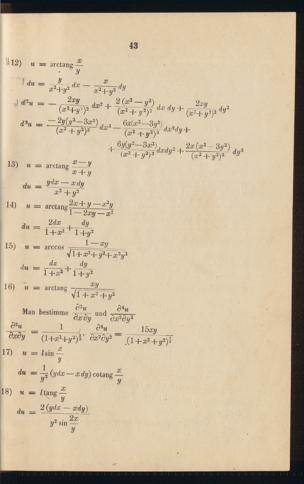 43
12) u = arctang x/y
du = y/(x²+y²) dx − x/(x²+y²) dy
d²u = − 2xy/(x²+y²)² dx² + 2(x²−y²)/(x²+y²)² dx dy + 2xy/(x²+y²)² dy²
d³u = −2y(y²−3x²)/(x²+y²)³ dx³ − 6x(x²−3y²)/(x²+y²)³ dx²dy +
+ 6y(y²−3x²)/(x²+y²)³ dxdy² + 2x(x²−3y²)/(x²+y²)³ dy³
13) u = arctang (x−y)/(x+y)
du = (ydx − xdy)/(x²+y²)
14) u = arctang (2x+y−x²y)/(1−2xy−x²)
du = 2dx/(1+x²) + dy/(1+y²)
15) u = arccos (1−xy)/√(1+x²+y²+x²y²)
du = dx/(1+x²) + dy/(1+y²)
16) u = arctang xy/√(1+x²+y²)
Man bestimme ∂²u/∂x∂y und ∂⁴u/∂x²∂y²
∂²u/∂x∂y = 1/(1+x²+y²)^(3/2), ∂⁴u/∂x²∂y² = 15xy/(1+x²+y²)^(7/2)
17) u = lsin x/y
du = 1/y² (ydx − xdy) cotang x/y
18) u = ltang x/y
du = 2(ydx − xdy)/(y² sin 2x/y)